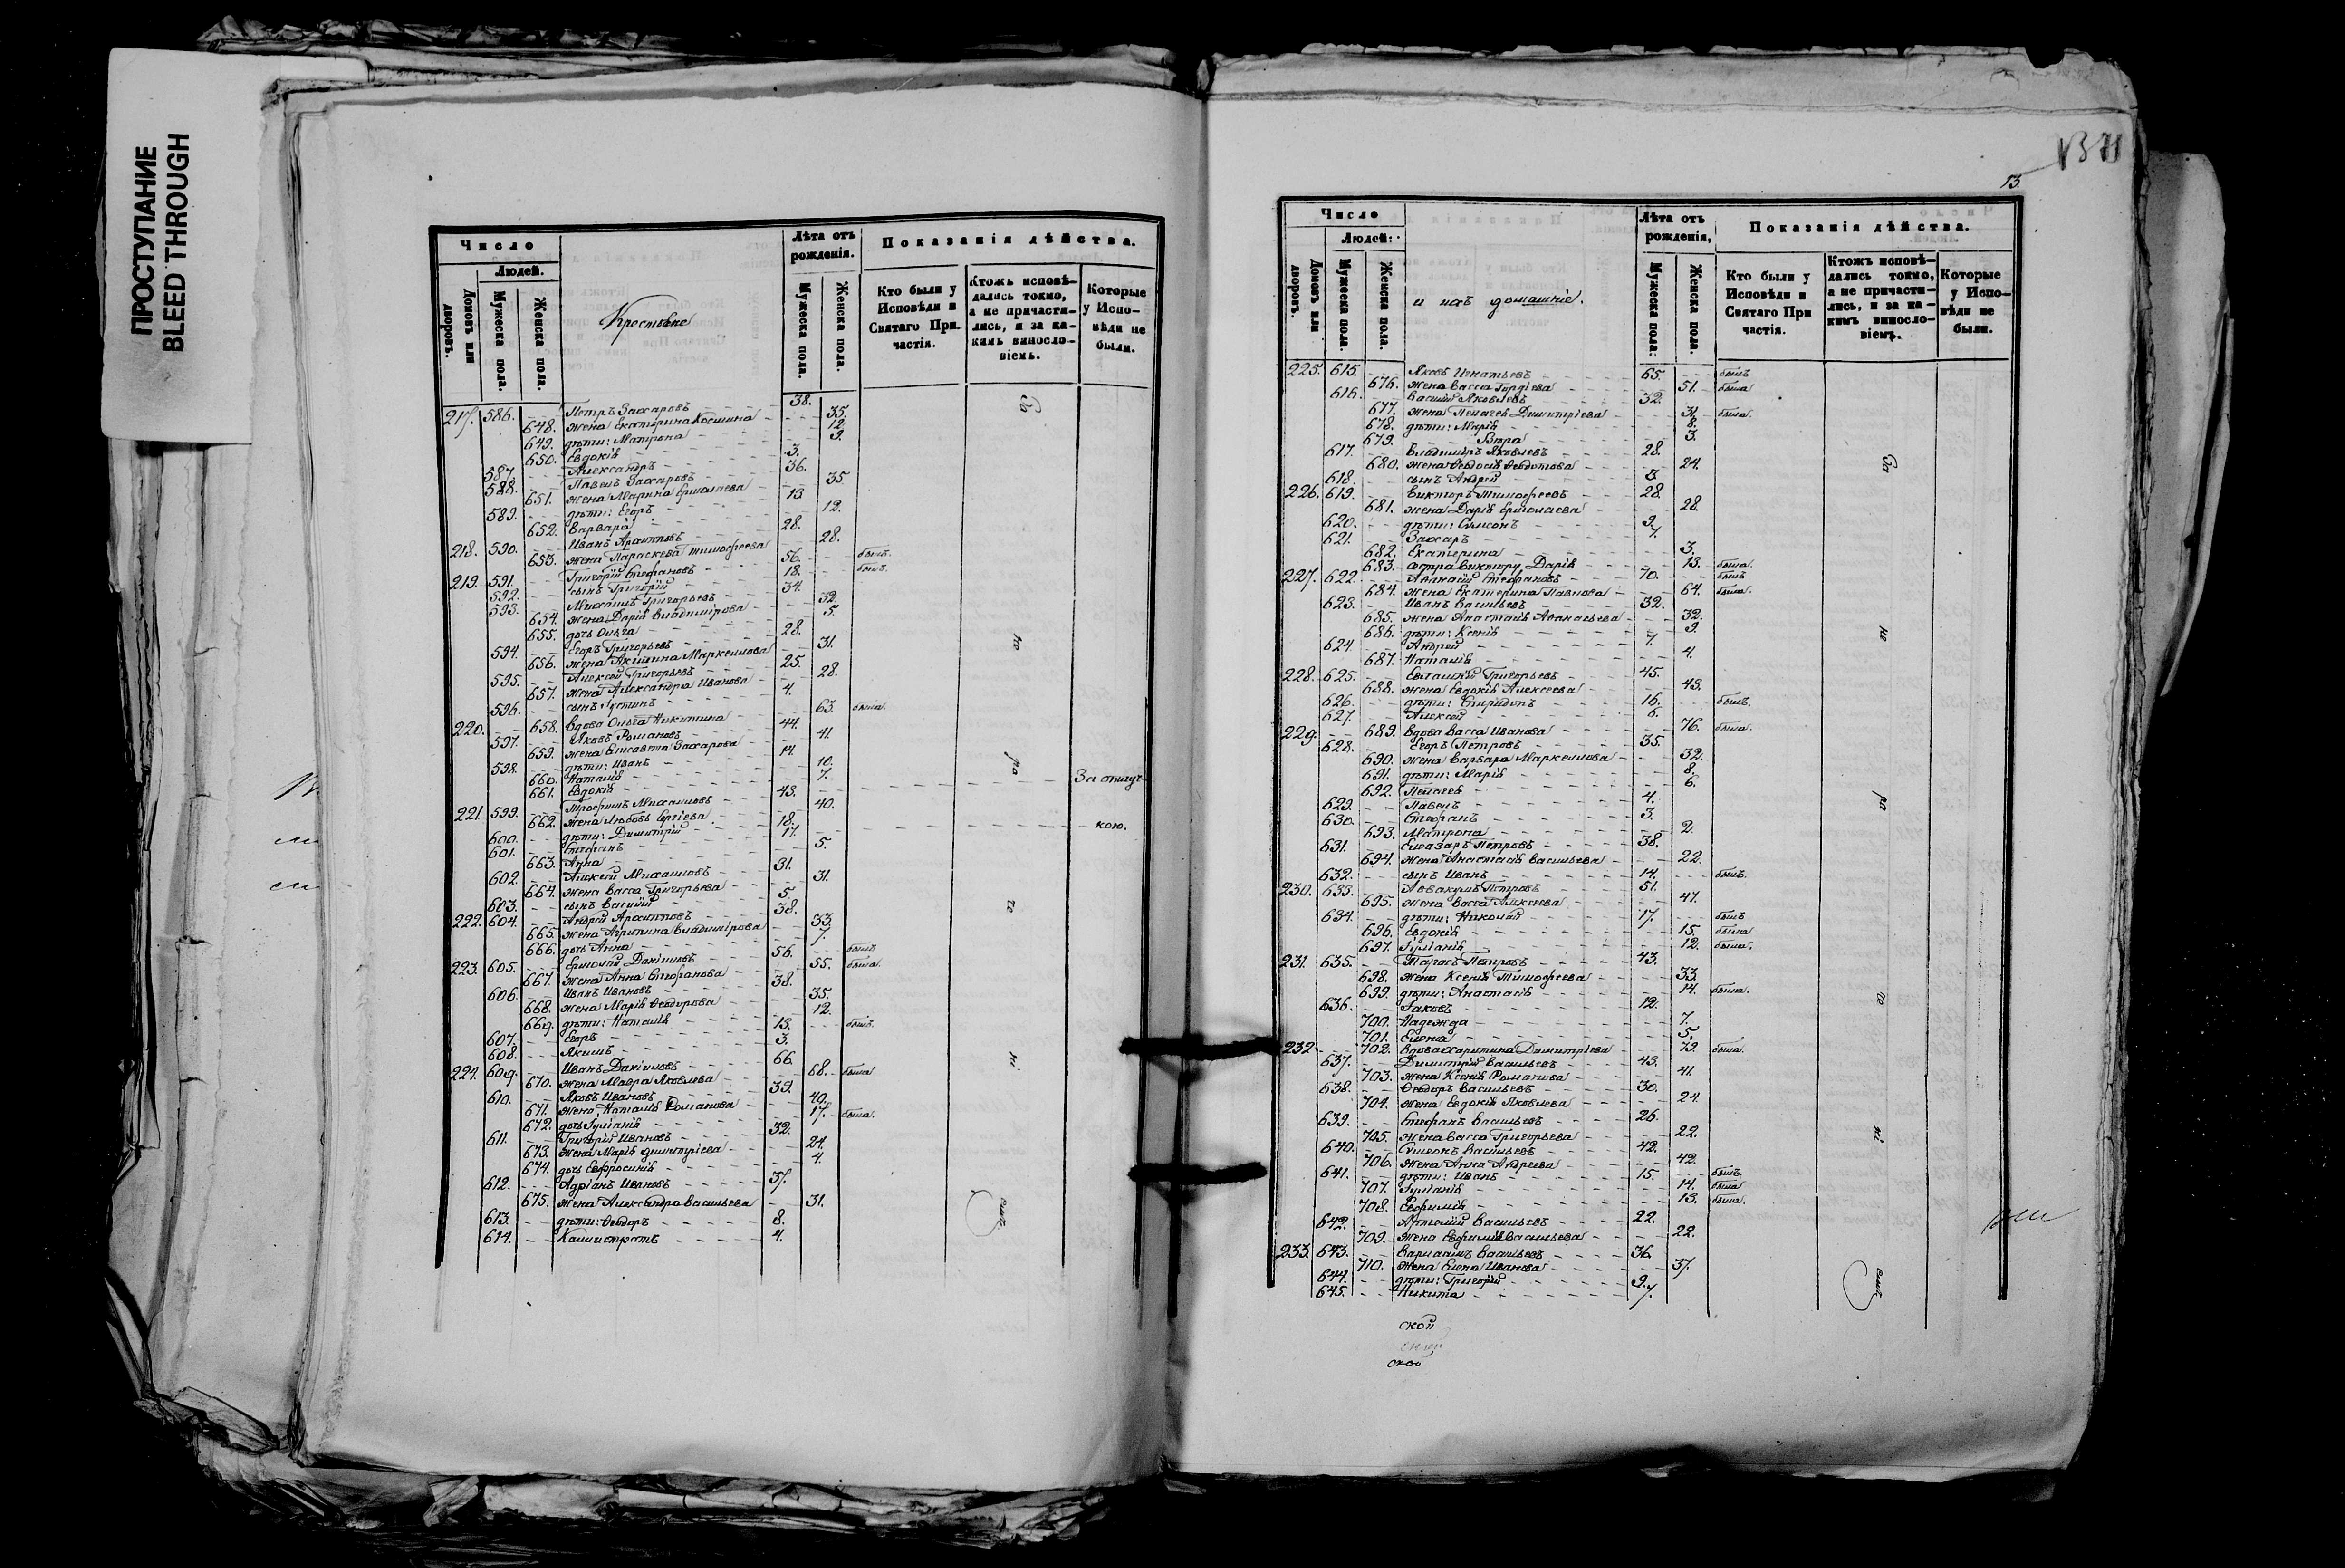 ПРОСТУПАНИЕ
BLEED THROUGH
Число
Людей.
Домовъ или дворовъ.
Мужеска пола.
Женска пола.
Крестьяне
Лѣта отъ рожденія.
Мужеска пола.
Женска пола.
Показанія дѣйства.
Кто были у Исповѣди и Святаго При-
частія.
Ктожъ исповѣ-
дались токмо,
а не причасти-
лись, и за ка-
кимъ виносло-
віемъ.
Которые
у Испо-
вѣди не
были.
217. 586. Петръ Захаровъ 38.
648. жена Екатерина Космина 35.
649. дѣти: Матрона 12.
650. Евдокія 9.
587. Александръ 3.
588. Павелъ Захаровъ 36.
651. жена Марина Ермолаева 35
589. дѣти: Егоръ 13.
652. Варвара 12.
218. 590. Иванъ Архиповъ 28.
653. жена Параскева Тимофеева 28.
219. 591. Григорій Стефановъ 56. былъ.
592. сынъ Григорій 18. былъ.
593. Михаилъ Григорьевъ 34.
654. жена Дарія Владимірова 32.
655. дочь Ольга 5.
594. Егоръ Григорьевъ 28.
656. жена Акилина Маркеллова 31.
595. Алексей Григорьевъ 25.
657. жена Александра Иванова 28.
596. сынъ Іустинъ 4.
220. 658. вдова Ольга Никитина 63. была.
597. Яковъ Романовъ 44.
659. жена Елисавета Захарова 41
598. дѣти: Иванъ 14.
660. Наталія 10.
661. Евдокія 7.
За отлуч-
221. 599. Трофимъ Михаиловъ 43.
662. жена Любовь Сергіева 40.
600. дѣти: Димитрій 18.
кою.
601. Стефанъ 17.
663. Анна 5.
602. Алексей Михаиловъ 31.
664. жена Васса Григорьева 31.
603. сынъ Василій 5.
222. 604. Андрей Архиповъ 38.
665. жена Агрипина Владимірова 33.
666. дочь Анна 7.
223. 605. Ермолай Даніиловъ 56. былъ
667. жена Анна Стефанова 55. была.
606. Иванъ Ивановъ 38.
668. жена Марія Ѳеодорова 35.
669. дѣти: Наталія 12.
607. Егоръ 13. былъ.
608. Якимъ 3.
224. 609. Иванъ Даніиловъ 66.
670. жена Мавра Яковлева 68. была
610. Яковъ Ивановъ 39.
671. жена Наталія Романова 40.
672. дочь Іуліанія 17. была.
611. Григорій Ивановъ 32.
673. жена Марія Димитріева 24.
674. дочь Евфросинія 4.
612. Адріанъ Ивановъ 37.
675. жена Александра Васильева 31.
613. дѣти: Ѳеодоръ 8.
614. Калистратъ 4.
13.
Число
Людей:
Домовъ или дворовъ.
Мужеска пола.
Женска пола.
и ихъ домашніе.
Лѣта отъ рожденія,
Мужеска пола:
Женска пола.
Показанія дѣйства.
Кто были у
Исповѣди и
Святаго При
частія.
Ктожъ исповѣ-
дались токмо,
а не причасти-
лись, и за ка-
кимъ виносло-
віемъ.
Которые
у Испо-
вѣди не
были.
225. 615. Яковъ Игнатьевъ 65. былъ
676. жена Васса Гордіева 51. была
616. Василій Яковлевъ 32.
677. жена Пелагея Димитріева 31. была.
678. дѣти: Марія 8.
679. Вѣра 3.
617. Владиміръ Яковлевъ 28.
680. жена Ѳеодосія Ѳеодотова 24.
618. сынъ Андрей
226. 619. Викторъ Тимофеевъ 28.
681. жена Дарія Ермолаева 28.
620. дѣти: Симеонъ 9.
621. Захаръ 7.
682. Екатерина 3.
683. сестра Виктору, Дарія 13. была.
227. 622. Аѳанасій Стефановъ 70. былъ
684. жена Екатерина Павлова 64. была.
623. Иванъ Васильевъ 32.
685. жена Анастасія Аѳанасьева 32.
686. дѣти: Ксенія 9.
624. Андрей 7.
687. Наталія 4.
228. 625. Евлампій Григорьевъ 45.
688. жена Евдокія Алексеева 43.
626. дѣти: Спиридонъ 16. былъ.
627. Алексей 6.
229. 689. вдова Васса Иванова 76. была.
628. Егоръ Петровъ 35.
690. жена Варвара Маркеллова 32.
691. дѣти: Марія 8.
692. Пелагея 6.
629. Павелъ 4.
630. Стефанъ 3.
693. Матрона 2.
631. Елеазаръ Петровъ 38.
694. жена Анастасія Васильева 22.
632. сынъ Иванъ 14. былъ.
230. 633. Аввакумъ Петровъ 51.
695. жена Васса Алексеева 47.
634. дѣти: Николай 17. былъ
696. Евдокія 15. была
697. Іуліанія 12. была.
231. 635. Тарасъ Петровъ 43.
698. жена Ксенія Тимофеева 33.
699. дѣти: Анастасія 14. была.
636. Іаковъ 12.
700. Надежда 7.
701. Елена 5.
232. 702. вдова Харитина Димитріева 73. была.
637. Димитрій Васильевъ 43.
703. жена Ксенія Романова 41.
638. Ѳеодоръ Васильевъ 30.
704. жена Евдокія Яковлева 24.
639. Стефанъ Васильевъ 26.
705. жена Васса Григорьева 22.
640. Симеонъ Васильевъ 42.
706. жена Анна Андреева 42.
641. дѣти: Иванъ 15. былъ.
707. Іуліанія 14. была
708. Евфимія 13. была.
642. Артемій Васильевъ 22.
709. жена Евфимія Васильева 22.
233. 643. Варлаамъ Васильевъ 36.
710. жена Елена Иванова 37.
644. дѣти: Григорій 9.
645. Никита 7.
ской
ской